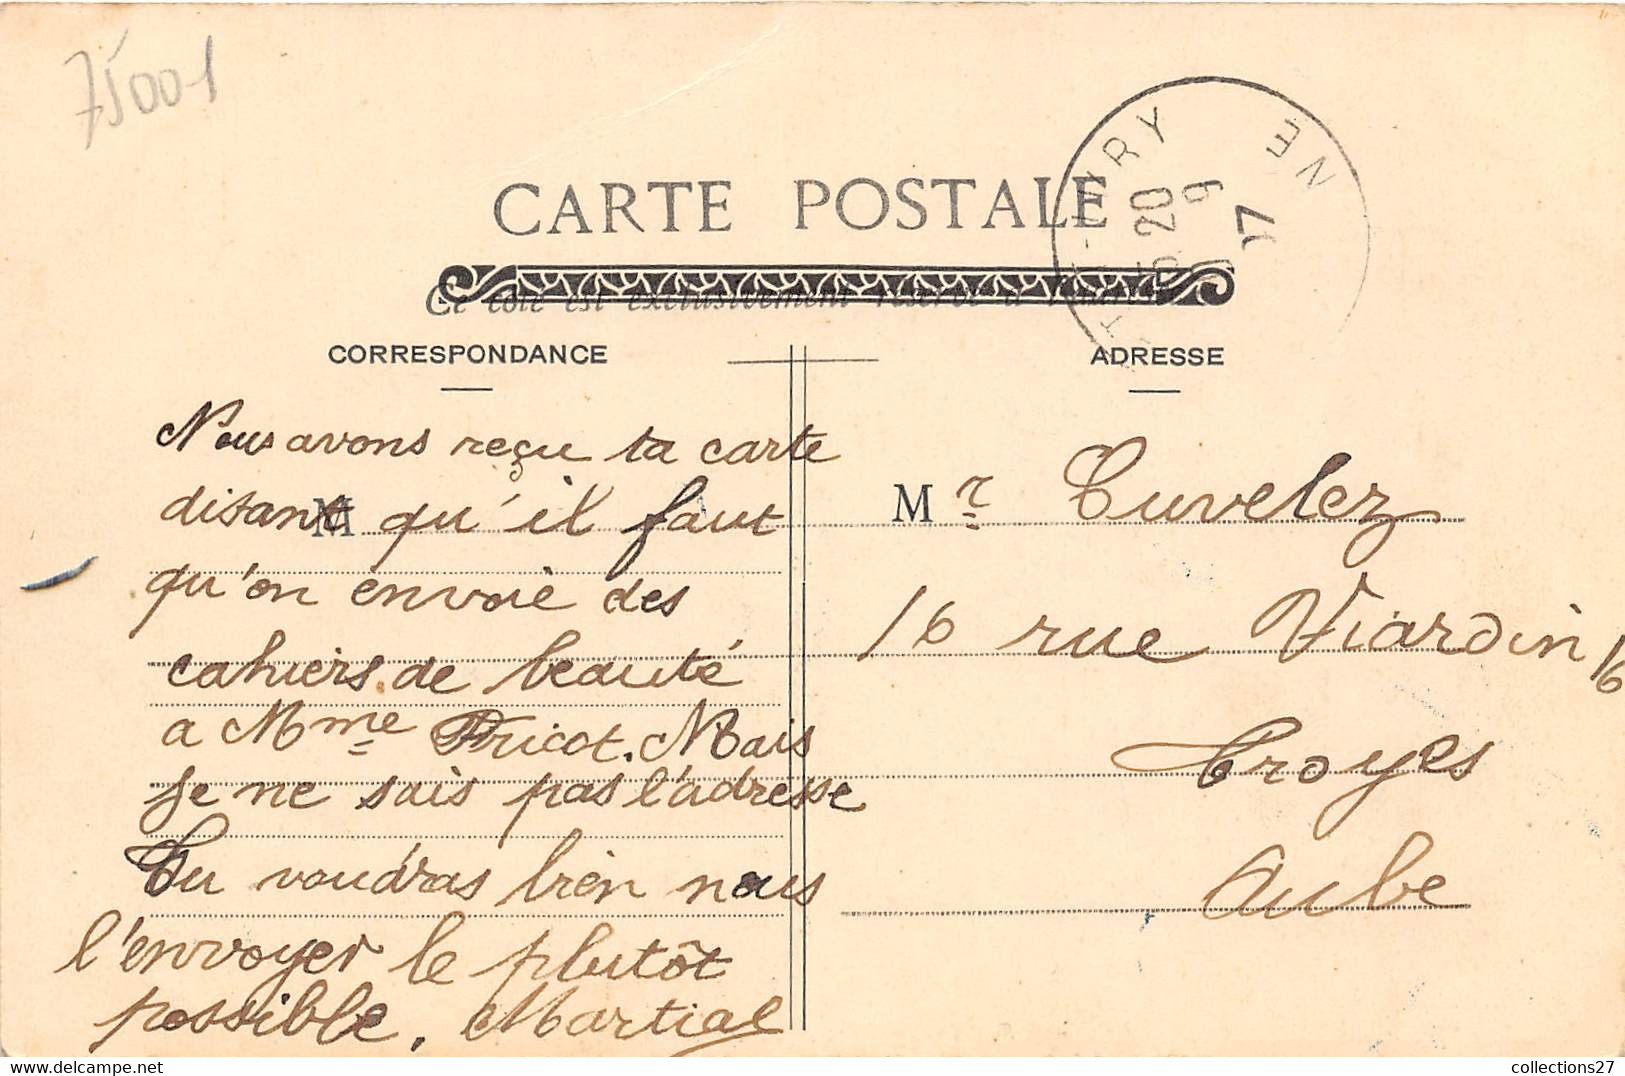 75001
CARTE POSTALE
Ce côté est exclusivement réservé à
CORRESPONDANCE
ADRESSE
Nous avons reçu ta carte
disant qu'il faut
qu'on envoie des
cahiers de beauté
a Mme Pricot. Mais
je ne sais pas l'adresse
Tu voudras bien nous
l'envoyer le plutôt
possible. Martial
M
Mr Cuvelez
16 rue Viardin 16
Troyes
Aube
IVRY
NE
20
9
17
collections27